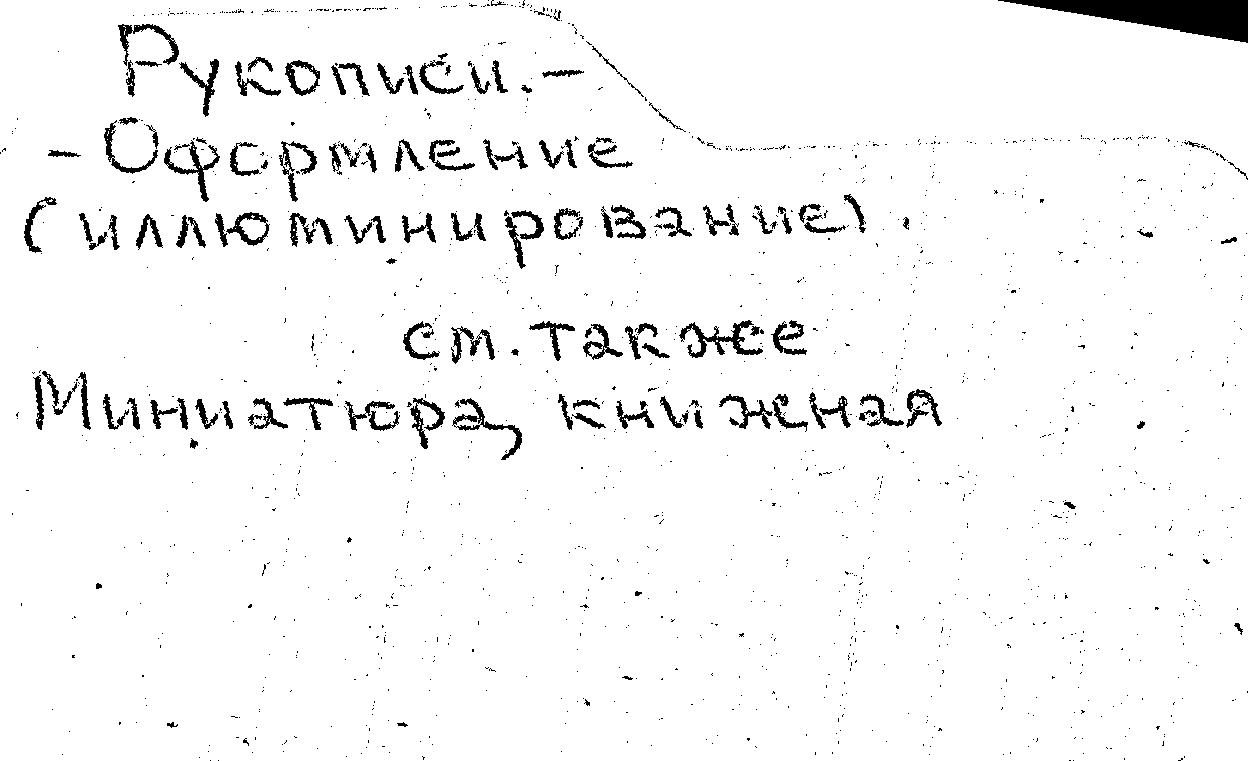 Рукописи. –
– Оформление
(иллюминирование).
см. также
Миниатюра, книжная